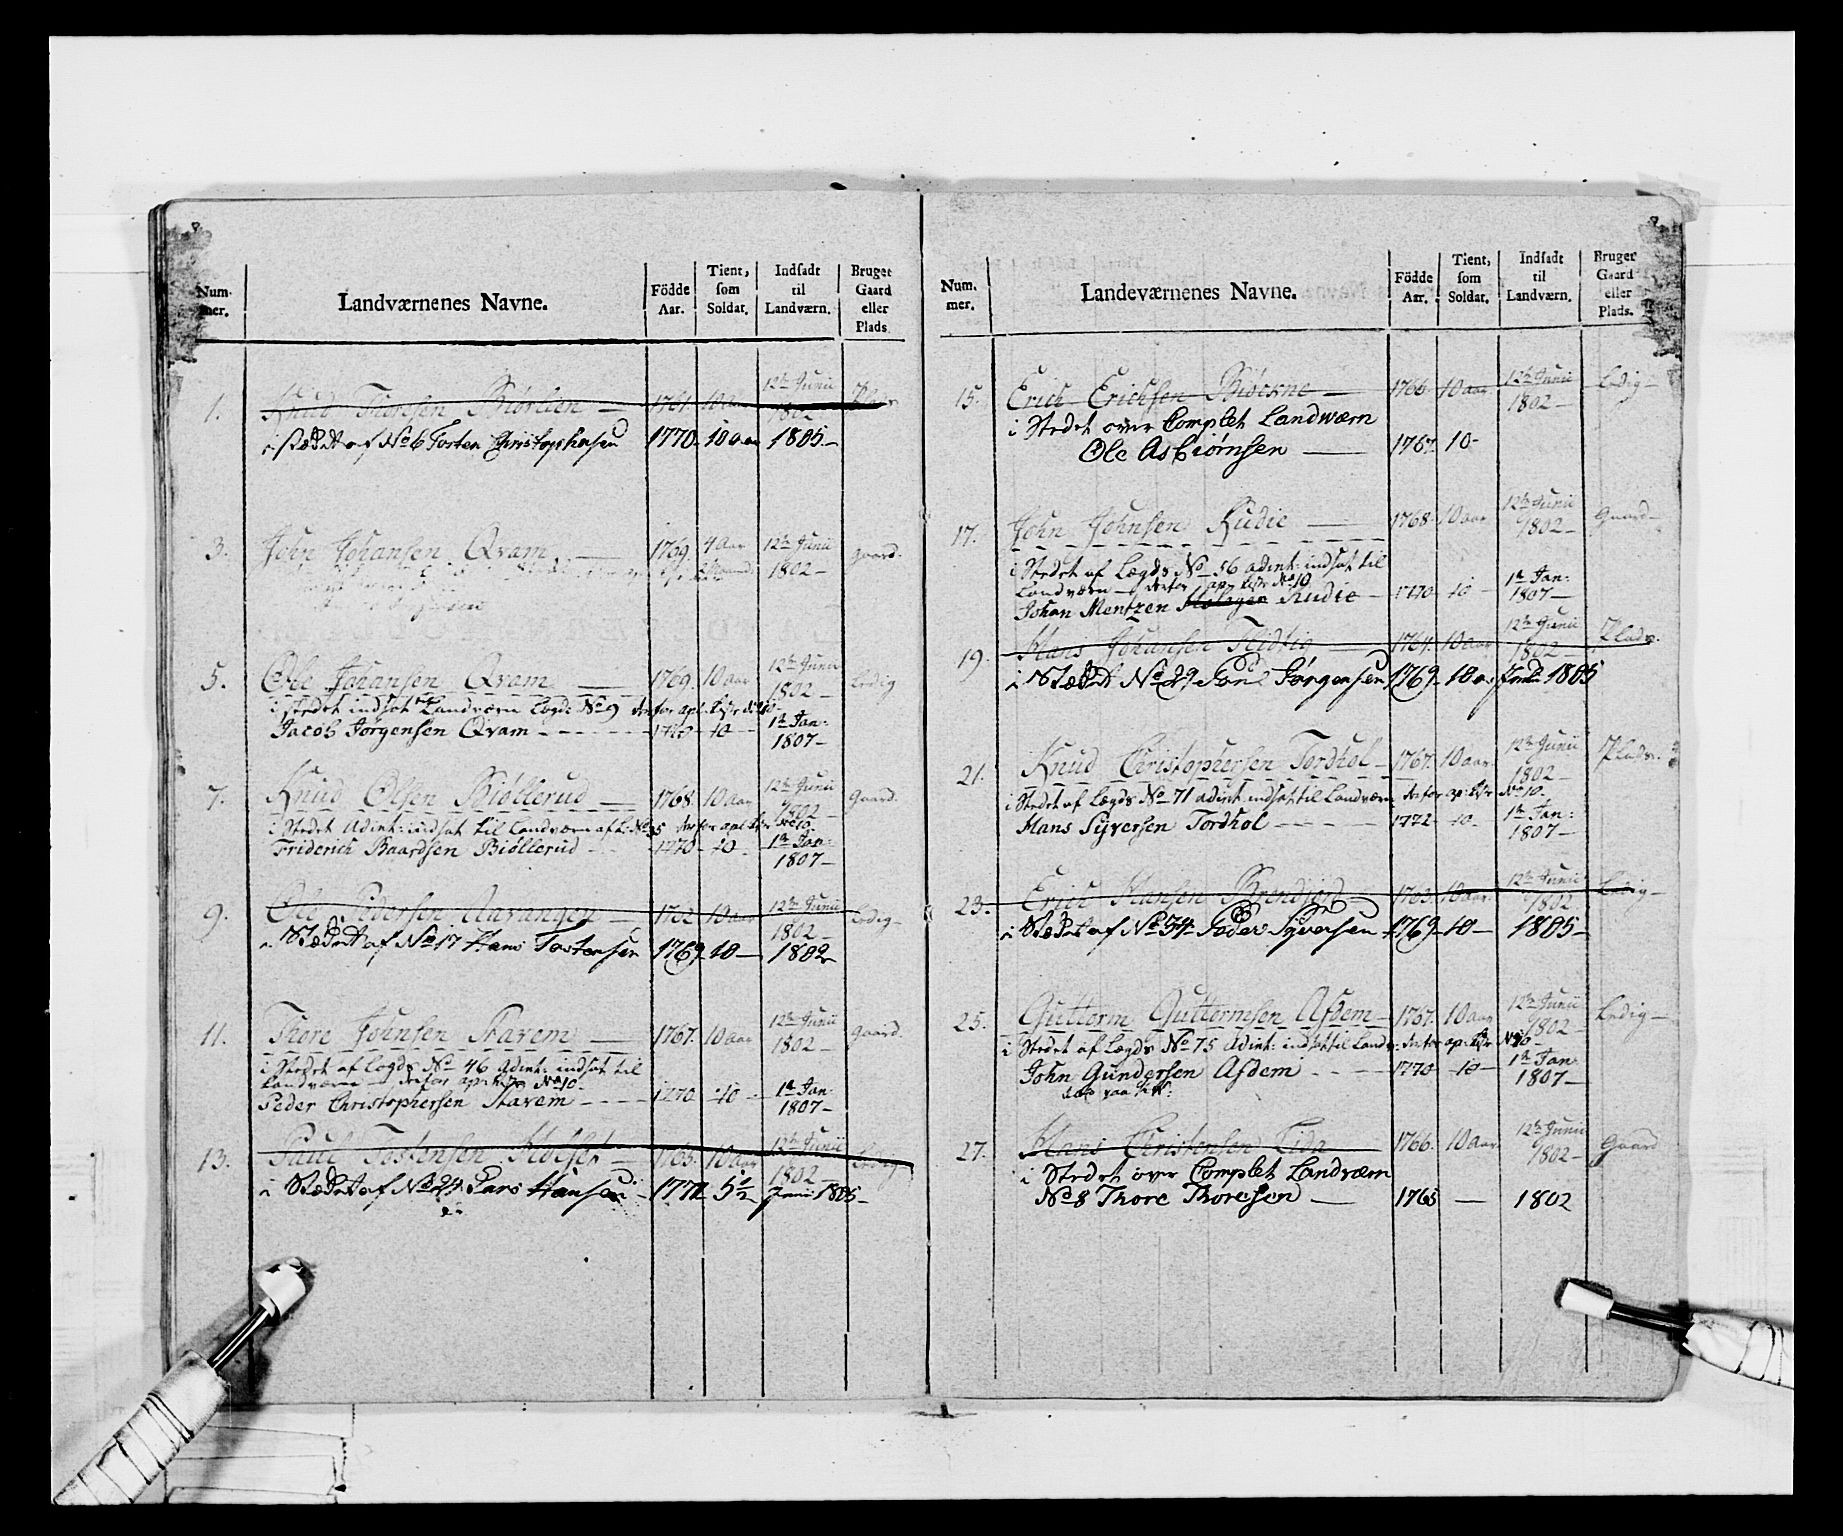 Num-
mer.
Landværnenes Navne.
Födde
Aar.
Tient,
som
Soldat.
Indsadt
til
Landværn.
Bruger
Gaard
eller
Plads.
1. Knud Thorsen Biørlien — 1761. 10 Aar 12te Junii 1802 Plads
i stædet af No 6 Tosten Christophersen 1770 10 aar 1805 —
3. John Johansen Qvam — 1769 4 Aar 12te Junii 1802 — Gaard.
5. Ole Johansen Qvam — 1769. 10 aar 12te Junii 1802 — Ledig
i stedet indsat Landværn Lægd: No 9 derfor apl. Liste No 10
Jacob Jørgensen Qvam — 1770 10 1te Jan: 1807 —
7. Knud Olsen Biøllerud — 1768. 10 Aar 12te Junii 1802 — Gaard.
i Stedet Adint: indsat til Landværn af L: No 35 derfor apl. Liste No 10.
Friderich Baardsen Biøllerud — 1770 10. 1te Jan: 1807 —
9. Ole Pedersen Aavangen — 1762 10 aar 12te Junii 1802 — Ledig —
i Stædet af No 17 Hans Tostensen 1769 10 — 1802
11. Thore Johnsen Stavem — 1767. 10 aar 12te Junii 1802 — Gaard.
i Stedet af Lægds No 46 Adint: indsat til
Landværn — derfor ap: Liste No 10.
Peder Christophersen Stavem — 1770 10 1te Jan 1807 —
13. Paul Tostensen — 1765. 10 aar 12te Junii 1802 — Ledig
i Stædet af No 24 Lars Hansen — 1771 5½ Junii 1805 —
Num.
mer.
Landeværnenes Navne.
Födde
Aar.
Tient,
som
Soldat.
Indsadt
til
Landværn.
Bruger
Gaard
eller
Plads.
15. Erich Erichsen Biørne — 1766. 10 aar 12te Junii 1802 — Ledig —
i Stedet over Complet Landværn
Ole Asbiørnsen — 1767. 10 —
17. John Johnsen Rudie — 1768. 10 aar 12te Junii 1802 — Gaard —
i Stedet af Lægds No 56 adint: indsat til
Landværn — derfor ap: Liste No 10
Johan Mentzen Rudie — 1770 10 — 1te Jan: 1807 —
19. Hans Johansen — 1764. 10 aar 12te Junii 1802 — Plads.
i Stædet No 29 Jørgensen 1769 10 Junii 1805
21. Knud Christophersen Tordhol — 1767. 10 aar 12te Junii 1802 — Plads.
i Stedet af Lægds No 71 adint indsat til Landværn derfor ap: Liste No 10.
Hans Syversen Tordhol — 1772 10. 1te Jan: 1807 —
23. Erich Hansen — 1763. 10 aar 12te Junii 1802 Ledig —
i Stædet af No 34 Peder Syversen 1769 10 — 1805 —
25. Guttorm Guttormsen Afdem — 1767. 10 aar 12te Junii 1802 — Ledig —
i Stedet af Lægds No 75 Adint: indsat til Landv: derfor ap: Liste No 10 —
John Gundersen Afdem — 1770 10 — 1te Jan 1807 —
27. Hans Christensen — 1766. 10 Aar 12te Junii 1802 — Gaard
i Stedet over Complet Landværn
No 8 Thore Thoresen — 1765 — 1802